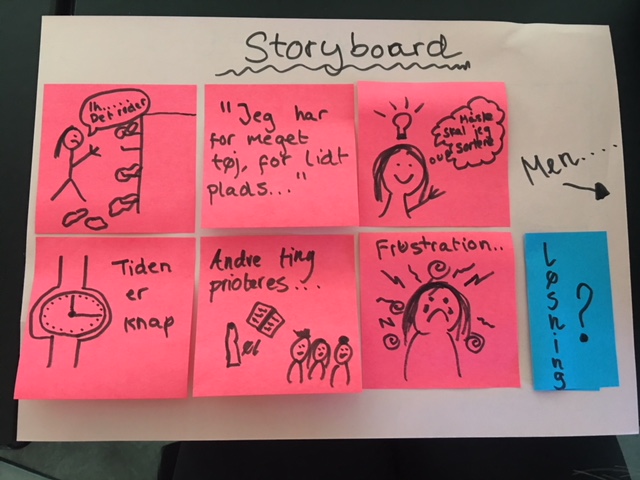 Storyboard
Ih......
Det roder
"Jeg har
for meget
tøj, for lidt
plads..."
Måske
skal jeg
sortere
ud
Men....
Tiden
er
knap
Andre ting
prioteres....
øl
Frustration..
Løsning
?